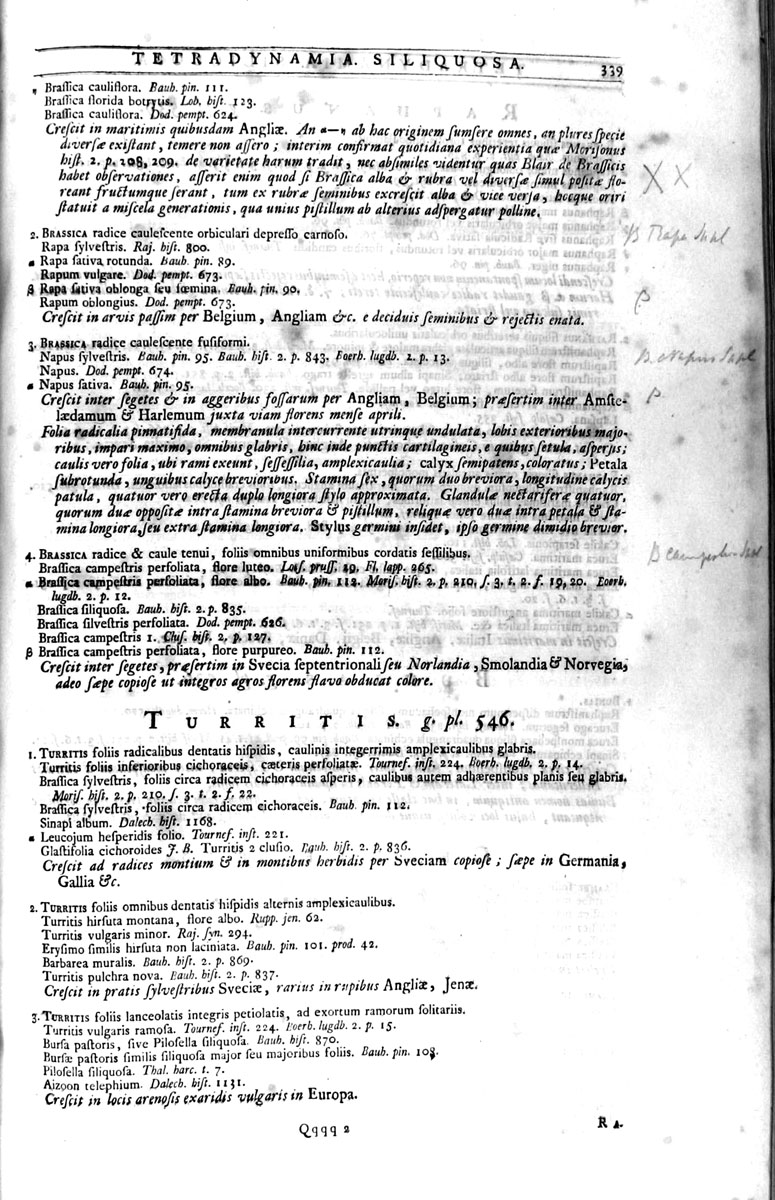 TETRADYNAMIA. SILIQUOSA. 339
Brassica cauliflora. Bauh. pin. 111.
Brassica florida botrytis. Lob. hist. 123.
Brassica cauliflora. Dod. pempt. 624.
Crescit in maritimis quibusdam Angliæ. An α—η ab hac originem sumsere omnes, an plures specie
diversæ existant, temere non assero; interim confirmat quotidiana experientia quæ Morisonus
hist. 2. p. 208, 209. de varietate harum tradit, nec absimiles videntur quas Blair de Brassicis
habet observationes, asserit enim quod si Brassica alba & rubra vel diversæ simul positæ flo-
reant fructumque ferant, tum ex rubræ seminibus excrescit alba & vice versa, hocque oriri
statuit a miscela generationis, qua unius pistillum ab alterius adspergatur polline.
X X
2. BRASSICA radice caulescente orbiculari depresso carnoso.
β Rapa Supl
Rapa sylvestris. Raj. hist. 800.
α Rapa sativa rotunda. Bauh. pin. 89.
Rapum vulgare. Dod. pempt. 673.
β Rapa sativa oblonga seu fœmina. Bauh. pin. 90.
β
Rapum oblongius. Dod. pempt. 673.
Crescit in arvis passim per Belgium, Angliam &c. e deciduis seminibus & rejectis enata.
3. BRASSICA radice caulescente fusiformi.
Napus sylvestris. Bauh. pin. 95. Bauh. hist. 2. p. 843. Boerh. lugdb. 2. p. 13.
B. Napus Supl
Napus. Dod. pempt. 674.
α Napus sativa. Bauh. pin. 95.
β
Crescit inter segetes & in aggeribus fossarum per Angliam, Belgium; præsertim inter Amste-
lædamum & Harlemum juxta viam florens mense aprili.
Folia radicalia pinnatifida, membranula intercurrente utrinque undulata, lobis exterioribus majo-
ribus, impari maximo, omnibus glabris, hinc inde punctis cartilagineis, e quibus setula, aspersis;
caulis vero folia, ubi rami exeunt, sessilia, amplexicaulia; calyx semipatens, coloratus; Petala
subrotunda, unguibus calyce brevioribus. Stamina sex, quorum duo breviora, longitudine calycis
patula, quatuor vero erecta duplo longiora stylo approximata. Glandulæ nectariferæ quatuor,
quorum duæ oppositæ intra stamina breviora & pistillum, reliquæ vero duæ intra petala & sta-
mina longiora, seu extra stamina longiora. Stylus germini insidet, ipso germine dimidio brevior.
4. BRASSICA radice & caule tenui, foliis omnibus uniformibus cordatis sessilibus.
B campestris Supl
Brassica campestris perfoliata, flore luteo. Lois. pruss. 29. Fl. lapp. 265.
α Brassica campestris perfoliata, flore albo. Bauh. pin. 112. Moris. hist. 2. p. 210. s. 3. t. 2. f. 19, 20. Boerh.
lugdb. 2. p. 12.
Brassica siliquosa. Bauh. hist. 2. p. 835.
Brassica silvestris perfoliata. Dod. pempt. 626.
Brassica campestris 1. Clus. hist. 2. p. 127.
β Brassica campestris perfoliata, flore purpureo. Bauh. pin. 112.
Crescit inter segetes, præsertim in Svecia septentrionali seu Norlandia, Smolandia & Norvegia,
adeo sæpe copiose ut integros agros florens flavo obducat colore.
TURRITIS. g. pl. 546.
1. TURRITIS foliis radicalibus dentatis hispidis, caulinis integerrimis amplexicaulibus glabris.
Turritis foliis inferioribus cichoraceis, cæteris perfoliatæ. Tournef. inst. 224. Boerh. lugdb. 2. p. 14.
Brassica sylvestris, foliis circa radicem cichoraceis asperis, caulibus autem adhærentibus planis seu glabris.
Moris. hist. 2. p. 210. s. 3. t. 2. f. 22.
Brassica sylvestris, foliis circa radicem cichoraceis. Bauh. pin. 112.
Sinapi album. Dalech. hist. 1168.
α Leucojum hesperidis folio. Tournef. inst. 221.
Glastifolia cichoroides J. B. Turritis 2 clusio. Bauh. hist. 2. p. 836.
Crescit ad radices montium & in montibus herbidis per Sveciam copiose; sæpe in Germania,
Gallia &c.
2. TURRITIS foliis omnibus dentatis hispidis alternis amplexicaulibus.
Turritis hirsuta montana, flore albo. Rupp. jen. 62.
Turritis vulgaris minor. Raj. syn. 294.
Erysimo similis hirsuta non laciniata. Bauh. pin. 101. prod. 42.
Barbarea muralis. Bauh. hist. 2. p. 869.
Turritis pulchra nova. Bauh. hist. 2. p. 837.
Crescit in pratis sylvestribus Sveciæ, rarius in rupibus Angliæ, Jenæ.
3. TURRITIS foliis lanceolatis integris petiolatis, ad exortum ramorum solitariis.
Turritis vulgaris ramosa. Tournef. inst. 224. Boerh. lugdb. 2. p. 15.
Bursa pastoris, sive Pilosella siliquosa. Bauh. hist. 870.
Bursæ pastoris similis siliquosa major seu majoribus foliis. Bauh. pin. 108.
Pilosella siliquosa. Thal. harc. t. 7.
Aizoon telephium. Dalech. hist. 1131.
Crescit in locis arenosis exaridis vulgaris in Europa.
Qqqq 2
R A.